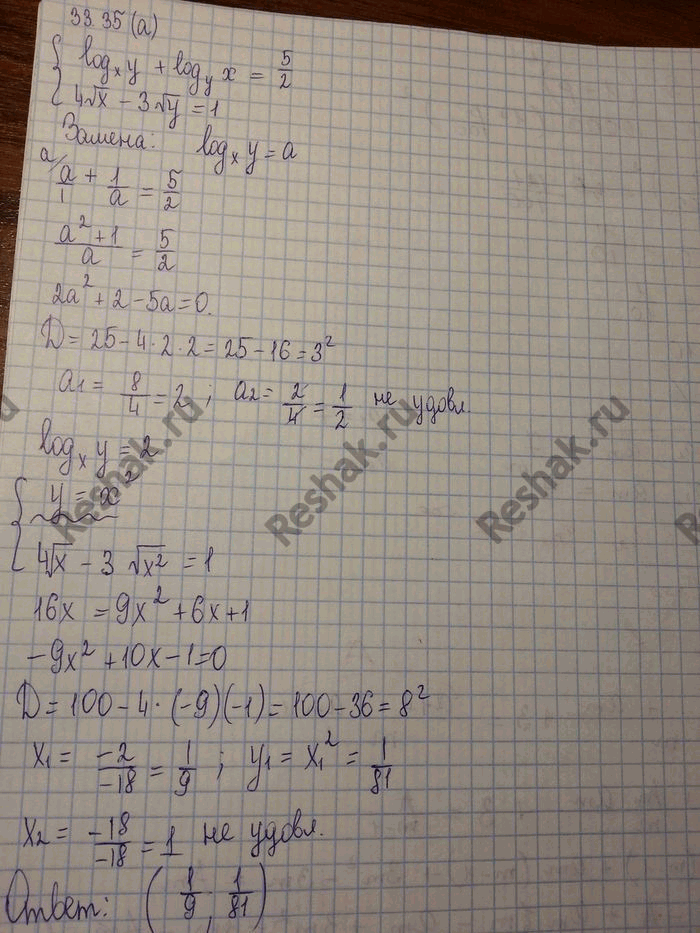 33.35(а)
{ log_x y + log_y x = 5/2
4√x − 3√y = 1
Замена: log_x y = a
a/ a/1 + 1/a = 5/2
(a² + 1)/a = 5/2
2a² + 2 − 5a = 0.
D = 25 − 4 · 2 · 2 = 25 − 16 = 3²
a₁ = 8/4 = 2 ; a₂ = 2/4 = 1/2 не удовл.
log_x y = 2
{ y = x²
4√x − 3√x² = 1
16x = 9x² + 6x + 1
−9x² + 10x − 1 = 0
D = 100 − 4 · (−9)(−1) = 100 − 36 = 8²
x₁ = −2/−18 = 1/9 ; y₁ = x₁² = 1/81
x₂ = −18/−18 = 1 не удовл.
Ответ: (1/9 ; 1/81)
Reshak.ru
Reshak.ru
Reshak.ru